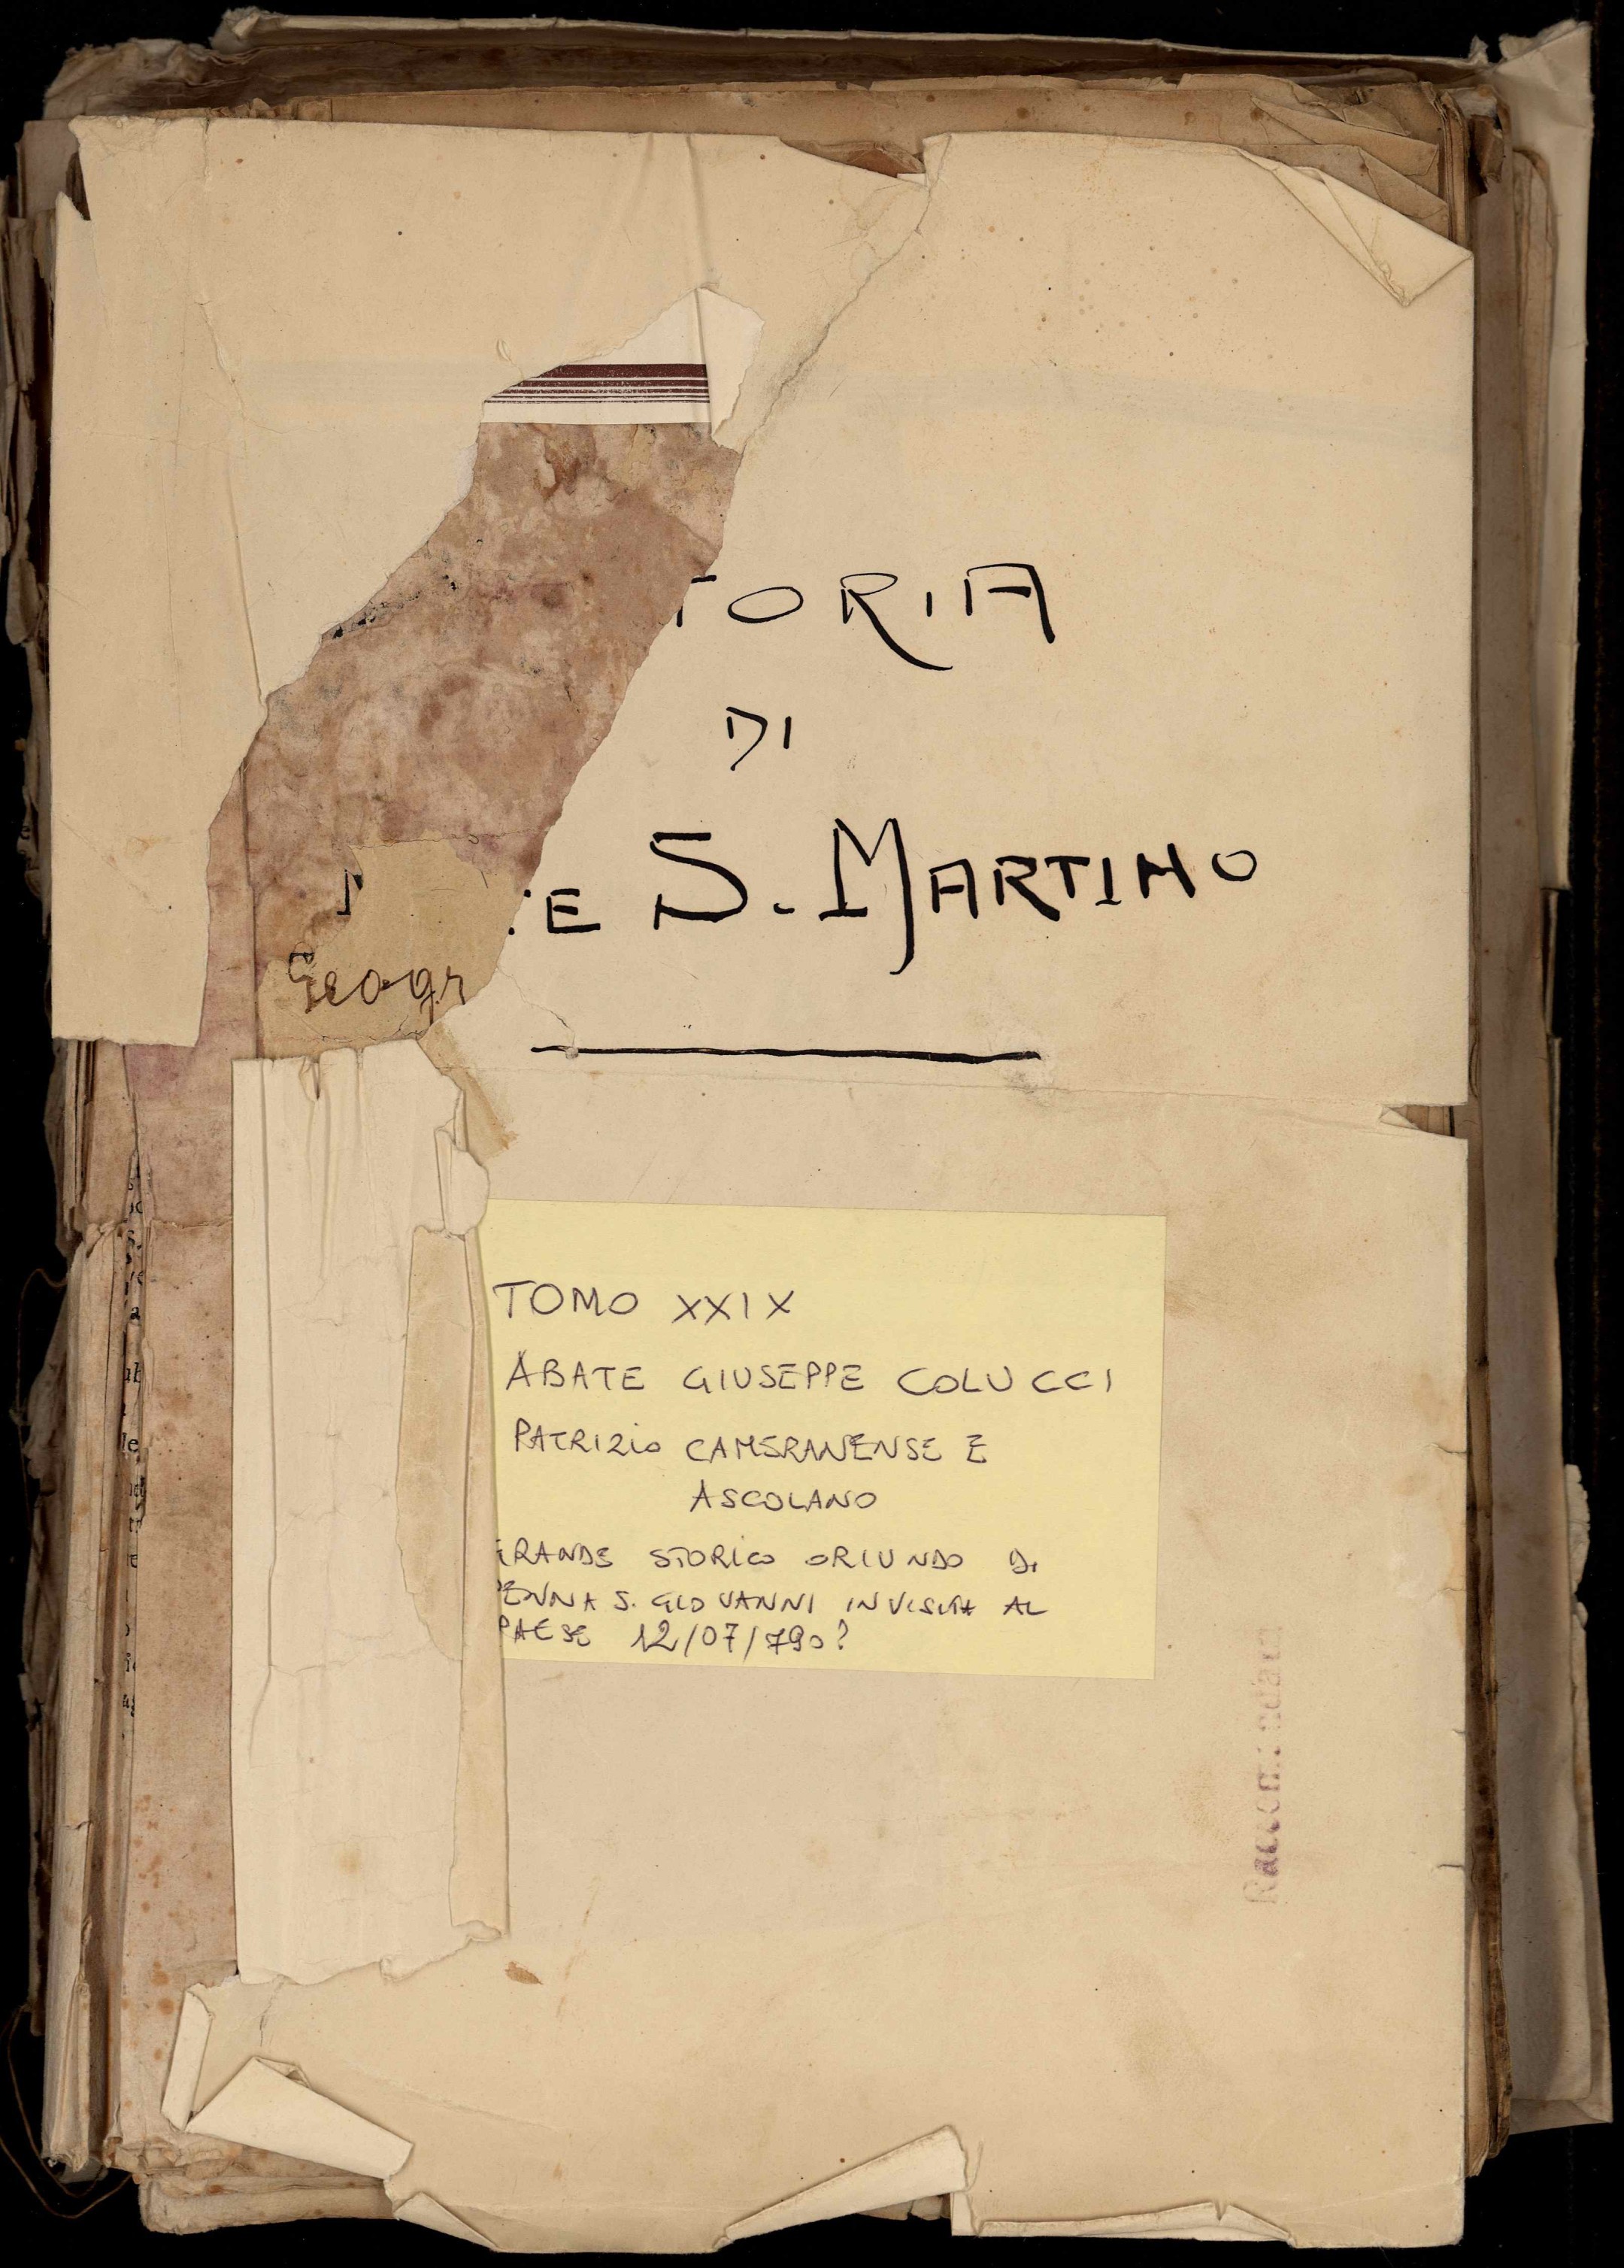 TORIA
DI
E S. MARTINO
Geogr
TOMO XXIX
ABATE GIUSEPPE COLUCCI
PATRIZIO CAMERANENSE E
ASCOLANO
GRANDE STORICO ORIUNDO DI
PENNA S. GIOVANNI IN VISITA AL
PAESE 12/07/790?